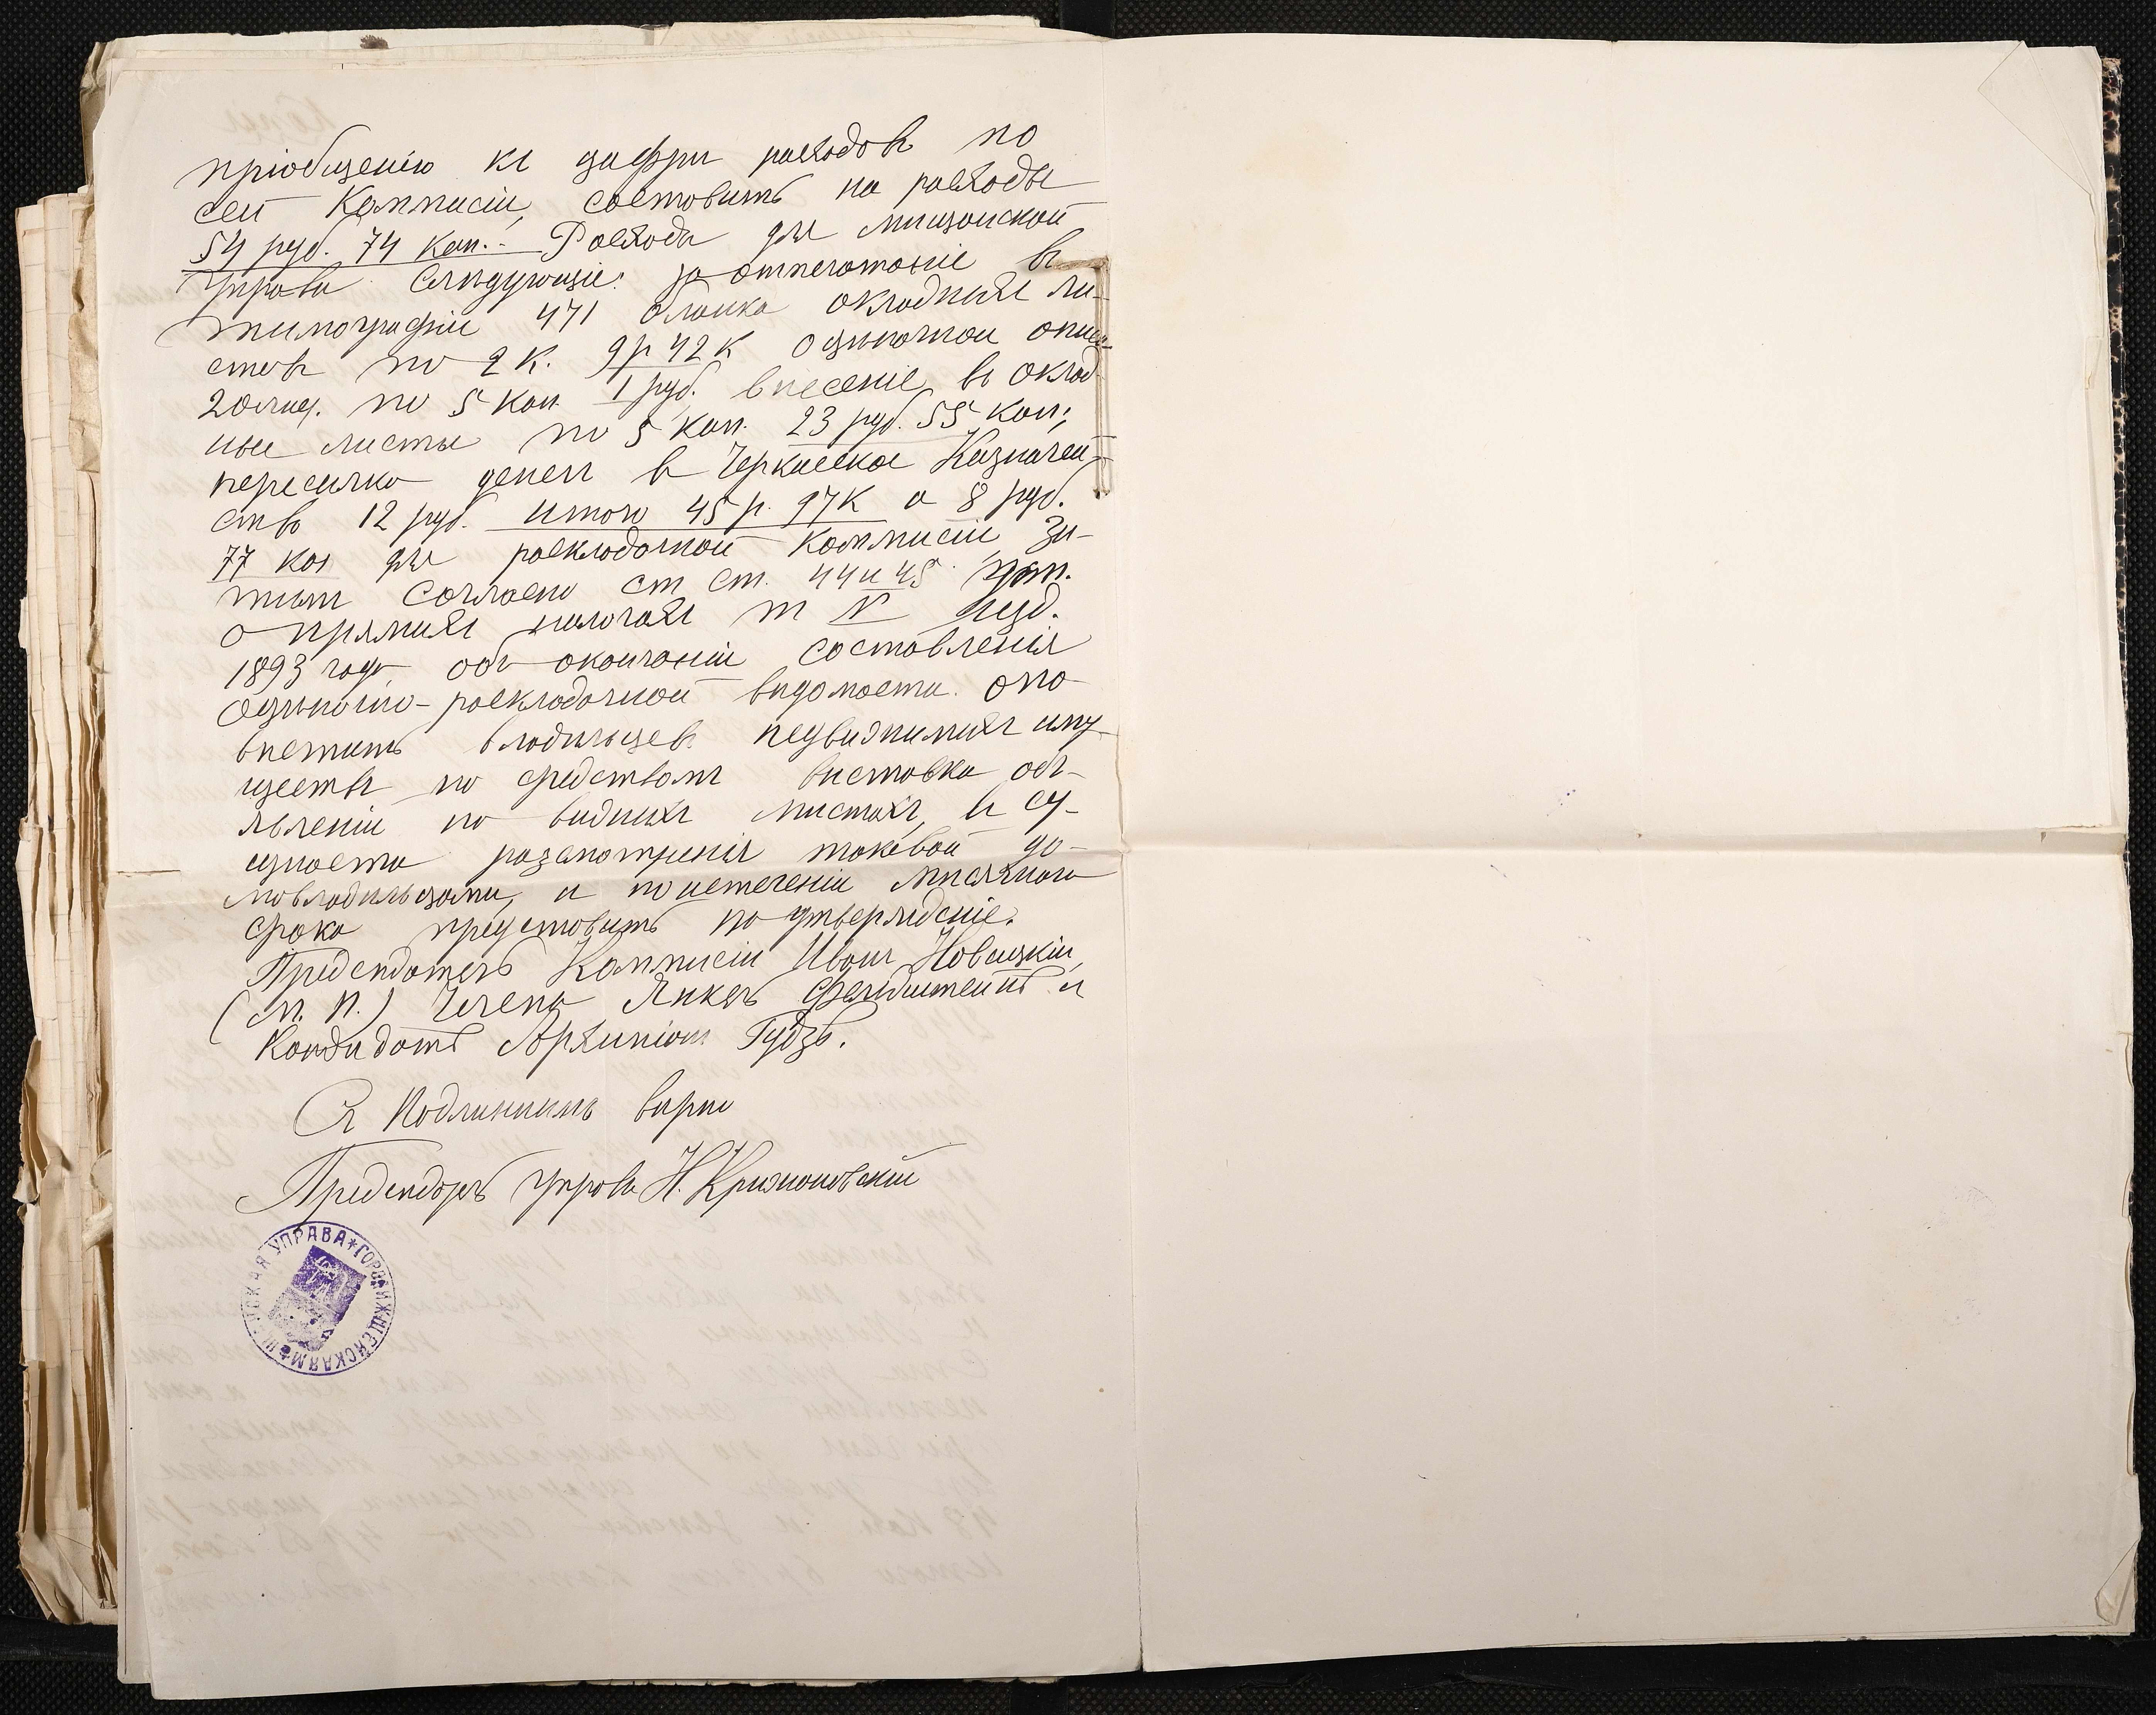 пріобщенію къ цифрѣ расходовъ по
сей Коммисіи, составитъ на расходы
54 руб. 74 коп. - Расходъ для мѣщанской
управы слѣдующіе: за отпечатаніе въ
типографіи 471 бланка окладныхъ ли-
стовъ по 2 к. 9 р 42 к оцѣночной описи
20 лис. по 5 коп 1 руб. внесеніе въ оклад-
ные листы по 5 коп. 23 руб. 55 коп;
пересылка денегъ въ Черкасское Казначей-
ство 12 руб. итого 45 р. 97 к и 8 руб.
77 коп для раскладочной Коммисіи, За-
тѣмъ согласно ст ст. 44 и 45 уст.
о прямыхъ налогахъ т V изд.
1893 года, объ окончаніи составленія
оцѣночно-раскладочной вѣдомости опо-
вѣстить владѣльцевъ недвижимыхъ иму-
ществъ по средствомъ выставки объ-
явленій на видныхъ мѣстахъ, въ су-
щности разсмотрѣнія таковой до-
мовладѣльцами, и по истеченіи мѣсячнаго
срока представить на утвержденіе.
Предсѣдатель Коммисіи Иванъ Новицкій,
(М. П.) Члены Янкель Фельдштейнъ и
Кандидатъ Архипъ Гудзь.
Съ Подлиннымъ вѣрно
Предсѣдатель управы Н. Крижановскій
ГОРОДИЩЕНСКАЯ МѢЩАНСКАЯ УПРАВА